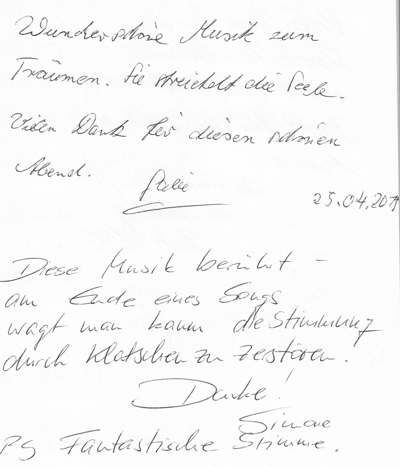 Wunderschöne Musik zum
Träumen. Sie streichelt die Seele.
Vielen Dank für diesen schönen
Abend.
25.04.20
Diese Musik berührt –
am Ende eines Songs
wagt man kaum die Stimmung
durch Klatschen zu zerstören.
Danke!
Simone
PS Fantastische Stimme.